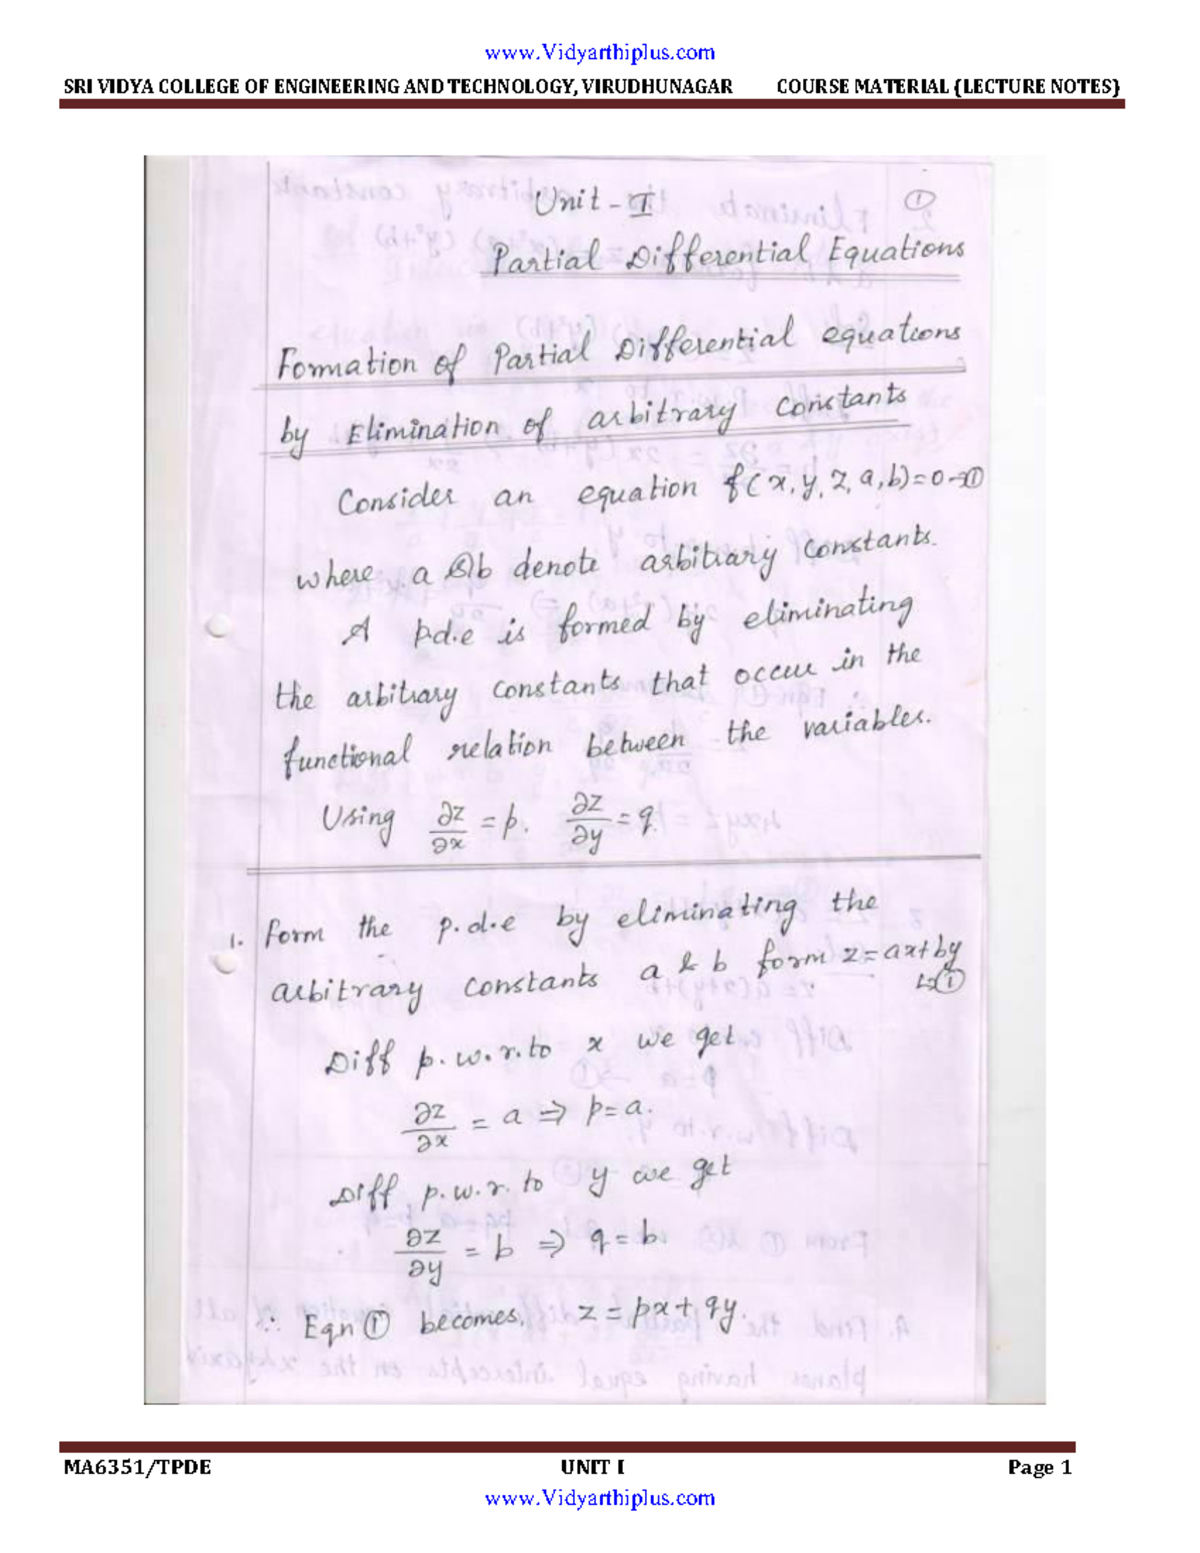 www.Vidyarthiplus.com
SRI VIDYA COLLEGE OF ENGINEERING AND TECHNOLOGY, VIRUDHUNAGAR COURSE MATERIAL (LECTURE NOTES)
Unit - I ①
Partial Differential Equations
Formation of Partial Differential equations
by Elimination of arbitrary constants
Consider an equation f(x, y, z, a, b) = 0 → ①
where a & b denote arbitrary constants.
A p.d.e is formed by eliminating
the arbitrary constants that occur in the
functional relation between the variables.
Using ∂z/∂x = p. ∂z/∂y = q.
1. Form the p.d.e by eliminating the
arbitrary constants a & b form z = ax + by
↳ ①
Diff p.w.r.to x we get
∂z/∂x = a ⇒ p = a.
Diff p.w.r. to y we get
∂z/∂y = b ⇒ q = b.
∴ Eqn ① becomes, z = px + qy.
MA6351/TPDE UNIT I Page 1
www.Vidyarthiplus.com